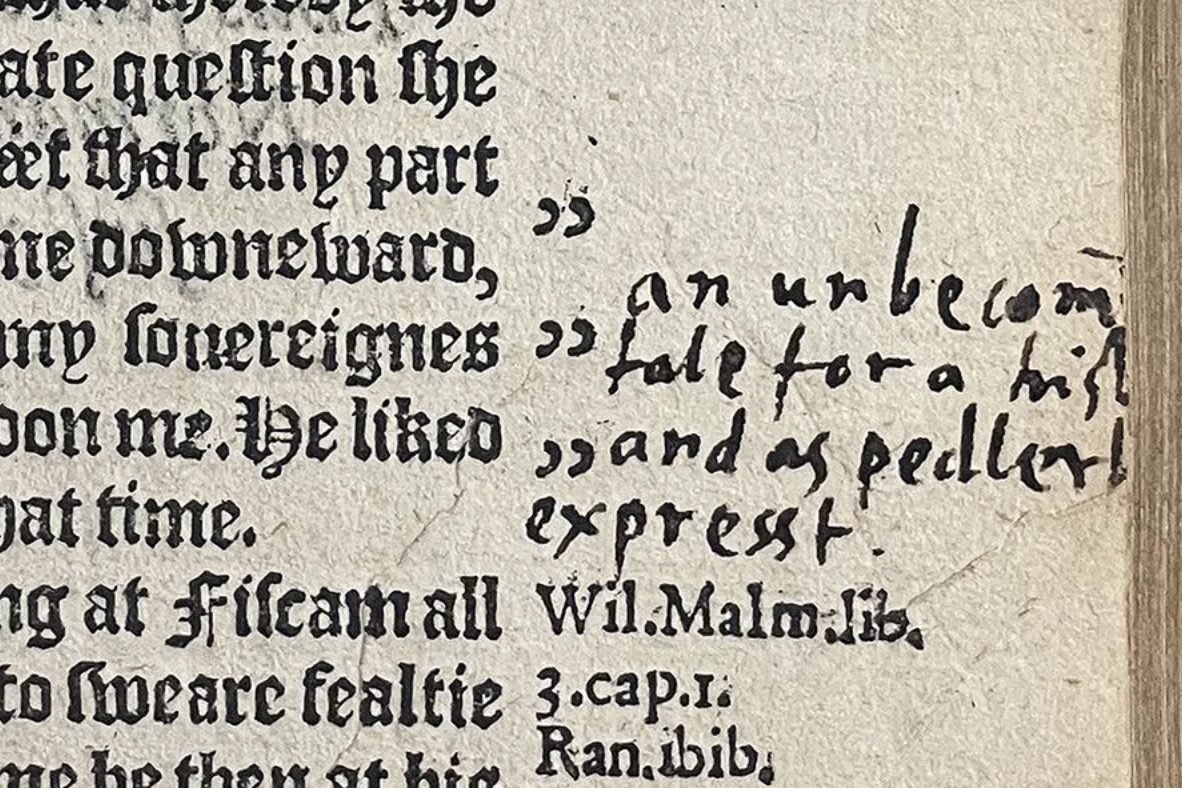 ate queſtion ſhe
that any part
downeward,
ſouereignes
me. He liked
time.
at Fiſcam all
to ſweare fealtie
he then at his
”
an unbecom
” tale for a hiſt
” and as pedlerl
expresst.
Wil.Malm.lib.
3.cap.1.
Ran.ibib.